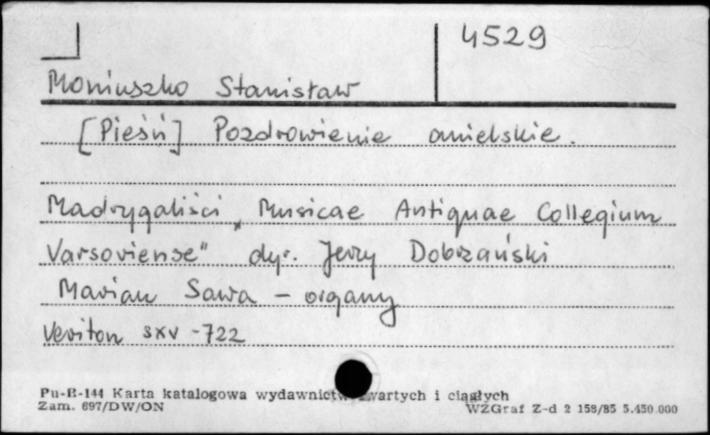 4529
Moniuszko Stanisław
[Pieśń] Pozdrowienie anielskie.
Madrygaliści „Musicae Antiquae Collegium
Varsoviense" dyr. Jerzy Dobrzański
Marian Sawa - organy
Veriton SXV-722
Pu-B-144 Karta katalogowa wydawnictw zwartych i ciągłych
Zam. 697/DW/ON WZGraf Z-d 2 158/85 5.450.000